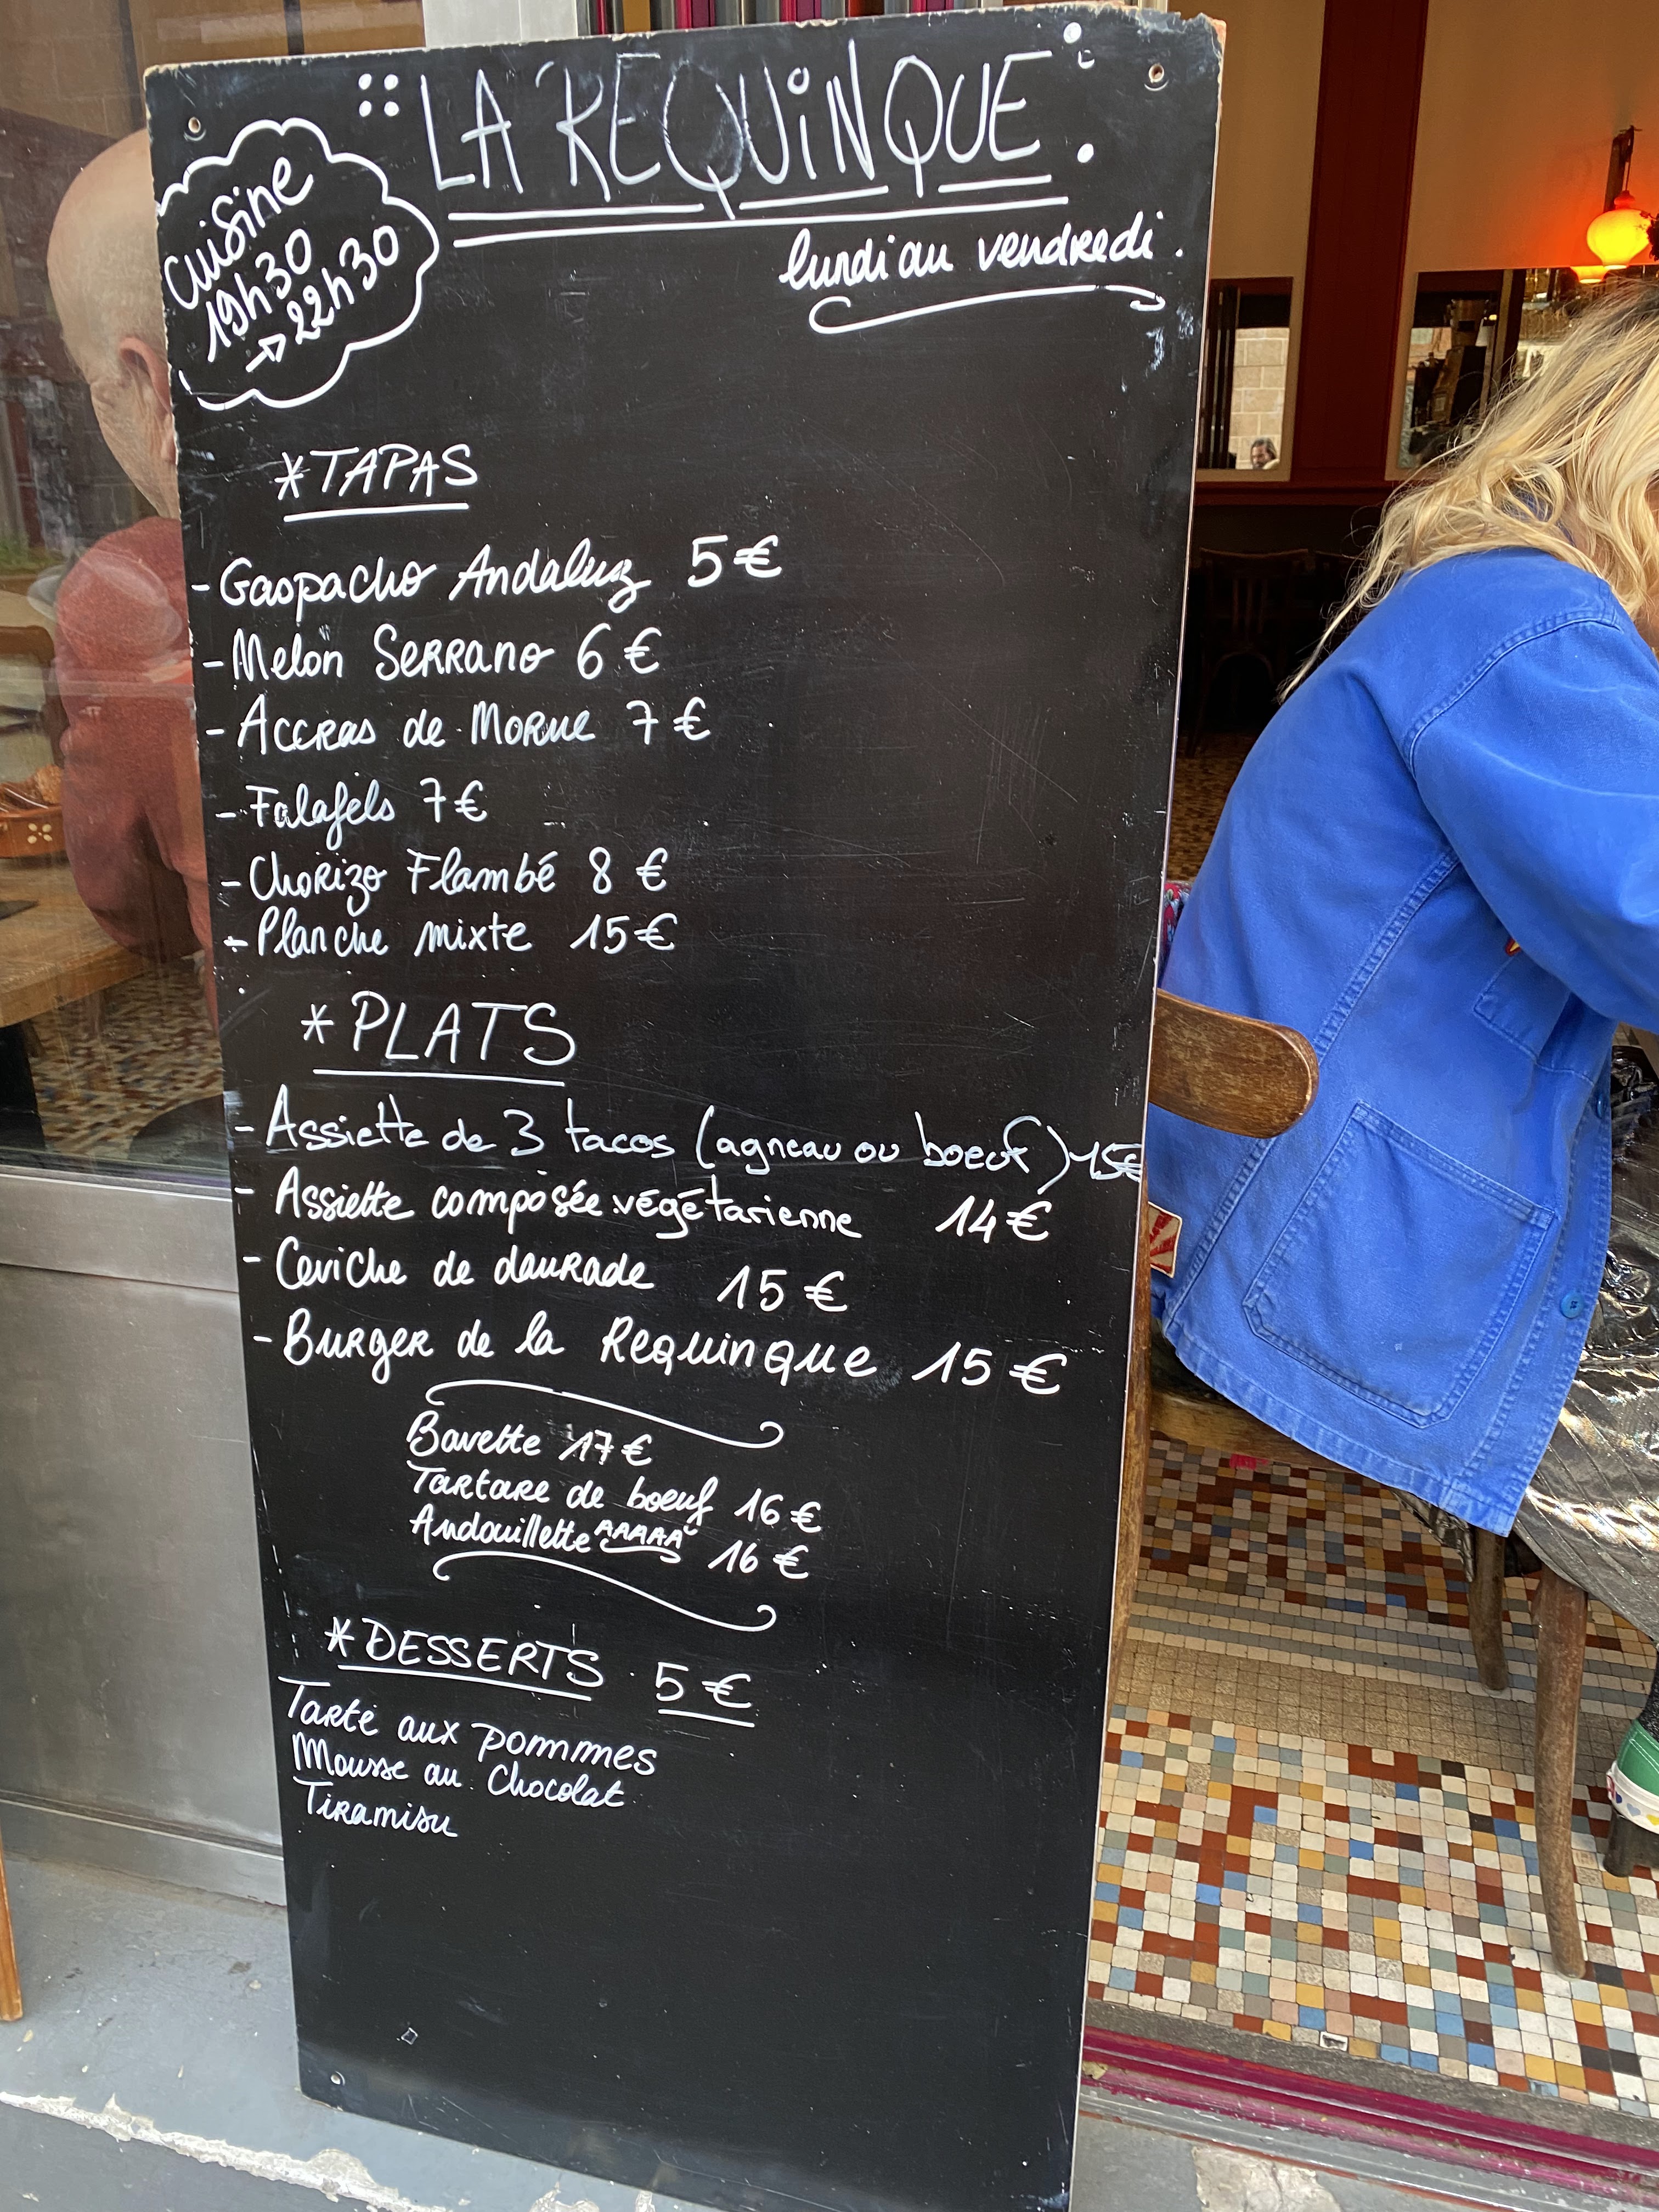 LA REQUINQUE
cuisine
19h30
→ 22h30
lundi au vendredi.
*TAPAS
- Gaspacho Andaluz 5€
- Melon Serrano 6€
- Accras de Morue 7€
- Falafels 7€
- Chorizo Flambé 8€
- Planche mixte 15€
*PLATS
- Assiette de 3 tacos (agneau ou boeuf) 15€
- Assiette composée végétarienne 14€
- Ceviche de daurade 15€
- Burger de la Requinque 15€
Bavette 17€
Tartare de boeuf 16€
Andouillette AAAAA 16€
*DESSERTS 5€
Tarte aux pommes
Mousse au Chocolat
Tiramisu